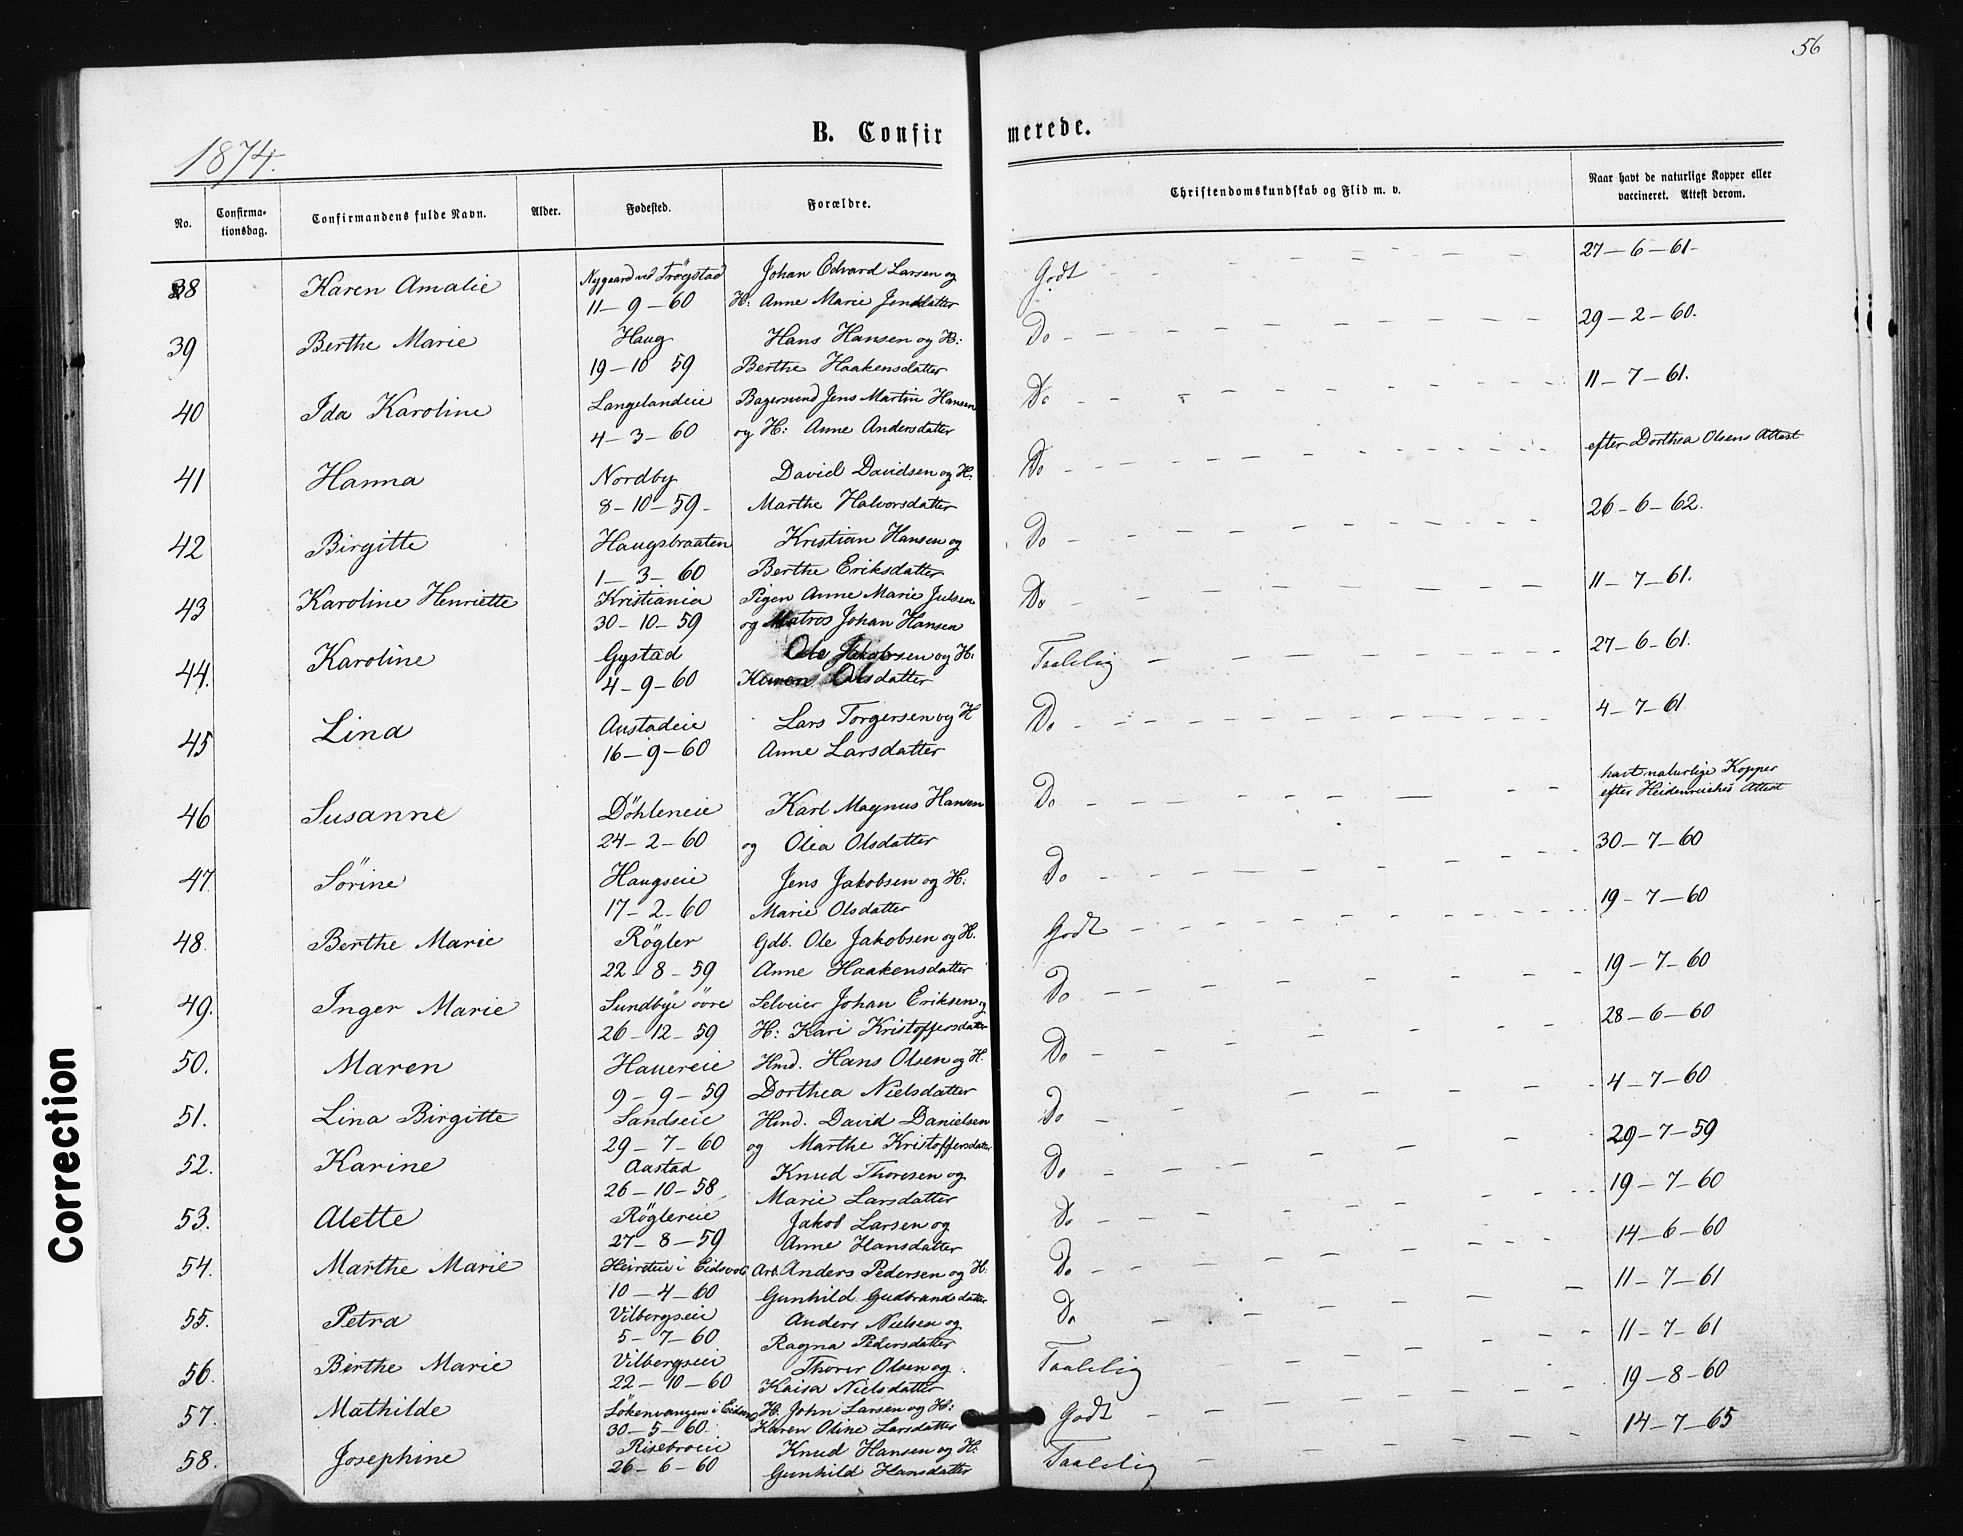 56
1874.
B. Confirmerede.
No. Confirmationsdag. Confirmandens fulde Navn. Alder. Fødested. Forældre. Christendomskundskab og Flid m. v. Naar havt de naturlige Kopper eller vaccineret. Attest derom.
38 Karen Amalie Nygaard ved Trögstad Johan Edvard Larsen og Godt 27-6-61
11-9-60 H: Anne Marie Jensdatter
39 Berthe Marie Haug Hans Hansen og H: Do 29-2-60.
19-10 59 Berthe Haakensdatter
40 Ida Karoline Langelandeie Jens Martin Hansen Do 11-7-61.
4-3-60 og H: Anne Andersdatter
41 Hanna Nordby David Davidsen og H: Do efter Dorthea Olsens Attest
8-10-59 Marthe Halvorsdatter
42 Birgitte Haugsbraaten Kristian Hansen og Do 26-6-62.
1-3-60 Berthe Eriksdatter
43 Karoline Henriette Kristiania Pigen Anne Marie Julsen Do 11-7-61.
30-10-59 og Matros Johan Hansen
44. Karoline Gystad Ole Jakobsen og H: Taalelig 27-6-61.
4-9-60 Karen Olsdatter
45 Lina Austadeie Lars Torgersen og H Do 4-7-61
16-9-60 Anne Larsdatter
46 Susanne Döhleneie Karl Magnus Hansen Do havt naturlige Kopper
efter Heidenreichs Attest
24-2-60 og Olea Olsdatter
47 Sörine Haugseie Jens Jakobsen og H: Do 30-7-60
17-2-60 Marie Olsdatter
48. Berthe Marie Rögler Gdb. Ole Jakobsen og H. Godt 19-7-60
22-8-59 Anne Haakensdatter
49. Inger Marie Sundbye övre Selveier Johan Eriksen og Do 19-7-60
26-12-59 H: Kari Kristoffersdatter
50. Maren Hauereie Hmd. Hans Olsen og H. Do 28-6-60
9-9-59 Dorthea Nielsdatter
51. Lina Birgitte Sandseie Hmd. David Danielsen Do 4-7-60
29-7-60 og Marthe Kristoffersdatter
52. Karine Aastad Knud Thoresen og Do 29-7-59
26-10-58 Marie Larsdatter
53. Alette Röglereie Jakob Larsen og Do 19-7-60
27-8-59 Anne Hansdatter
54. Marthe Marie i Eidsvol Arb. Anders Pedersen og H. Do 14-6-60
10-4-60 Gunhild Gudbrandsdatter
55. Petra Vilbergseie Anders Nielsen og Do 11-7-61
5-7-60 Ragna Pedersdatter
56. Berthe Marie Vilbergseie Thorer Olsen og Taalelig 11-7-61
22-10-60 Kaisa Nielsdatter
57. Mathilde Lökenvangen i Eidsvol H. John Larsen og H: Godt 19-8-60
30-5-60. Karen Oline Larsdatter
58. Josephine Risebroeie Knud Hansen og H: Taalelig 14-7-65
26-6-60 Gunhild Hansdatter
Correction